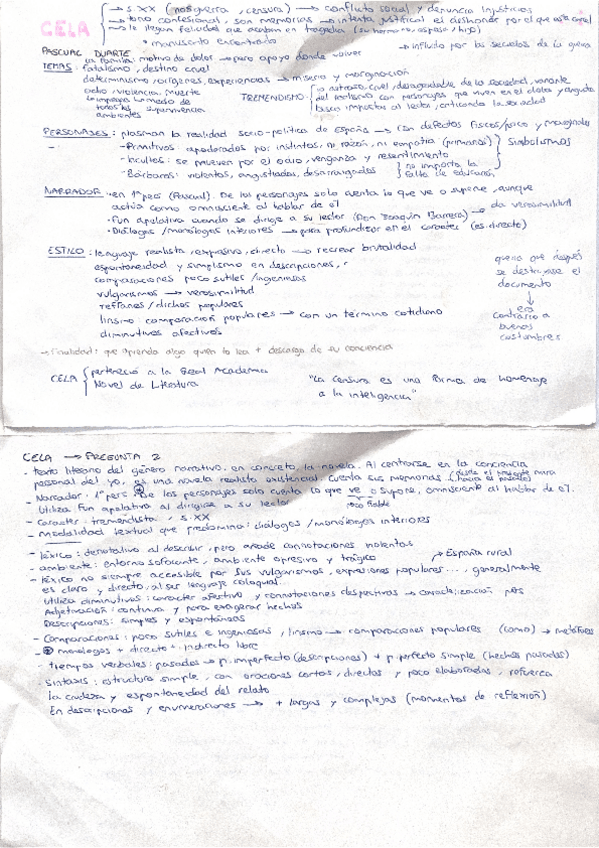 → s.XX (posguerra, censura) → conflicto social y denuncia injusticias
CELA → tono confesional, son memorias → intenta justificar el deshonor por el que esta aquel
→ le llegan felicidad que acaban en tragedia (su hermano, esposa, hijo)
• manuscrito encontrado
PASCUAL DUARTE → influido por las secuelas de la guerra
la familia: motivo de dolor → pero apoyo donde volver
TEMAS: fatalismo, destino cruel
determinismo, orígenes, experiencias → miseria y marginación
odio, violencia, muerte
TREMENDISMO: lo natroso, cruel, desagradable, de la sociedad, variante
del realismo con personajes que viven en el dolor y angustia
busca impactar al lector, criticando la sociedad
todos los supervivencia
ambientes
PERSONAJES: plasman la realidad socio-política de España → con defectos físcos/psico y marginales
- Primitivos: apoderados por instintos, no razón, ni empatía (primarios)
- Incultos: se mueven por el odio, venganza y resentimiento
- Bárbaros: violentos, angustiados, desarraigados
} simbolismos
} no importa la falta de educación
NARRADOR: en 1ª pers (Pascual). De los personajes solo cuenta lo que ve o supone, aunque
actúa como omnisciente al hablar de él
• Fun apelativa cuando se dirige a su lector (Don Joaquín Barrera) → da verosimilitud
• Diálogos/monólogos interiores → para profundizar en el carácter (es. directo)
ESTILO: lenguaje realista, expresivo, directo → recrear brutalidad
espontaneidad y simplismo en descripciones,
comparaciones poco sutiles/ingeniosas
vulgarismos → verosimilitud
refranes/dichos populares
lirismo: comparación populares → con un término cotidiano
diminutivos afectivos
quería que después
se destruyese el
documento
↓
era
contrario a
buenas
costumbres
→ Finalidad: que aprenda algo quien lo lea + descarga de su conciencia
CELA { perteneció a la Real Academia
Novel de Literatura
"La censura es una forma de homenaje
a la inteligencia"
CELA → PREGUNTA 2
- texto literario del género narrativo, en concreto, la novela. Al centrarse en la conciencia
personal del yo, es una novela realista existencial. Cuenta sus memorias → (desde el presente mira hacia el pasado)
- Narrador: 1ª pers. De los personajes solo cuenta lo que ve o supone, omnisciente al hablar de él.
Utiliza Fun apelativa al dirigirse a su lector → poco fiable
- Carácter: tremendista, s.XX
- Modalidad textual que predomina: diálogos/monólogos interiores
- Léxico: denotativo al describir, pero añade connotaciones violentas
- ambiente: entorno sofocante, ambiente opresivo y trágico → España rural
- léxico no siempre accesible por sus vulgarismos, expresiones populares..., generalmente
es claro y directo al ser lenguaje coloquial.
Utiliza diminutivos: carácter afectivo y connotaciones despectivas → caracterización pers
Adjetivación: continua y para exagerar hechos
Descripciones: simples y espontáneas
- Comparaciones: poco sutiles e ingeniosas, lirismo → comparaciones populares (como) → metáforas
- monologos + directo + indirecto libre
- tiempos verbales: pasados → p. imperfecto (descripciones) + p. perfecto simple (hechos pasados)
- sintaxis: estructura simple, con oraciones cortas, directas y poco elaboradas, refuerza
la crudeza y espontaneidad del relato
En descripciones y enumeraciones → + largas y complejas (momentos de reflexión)